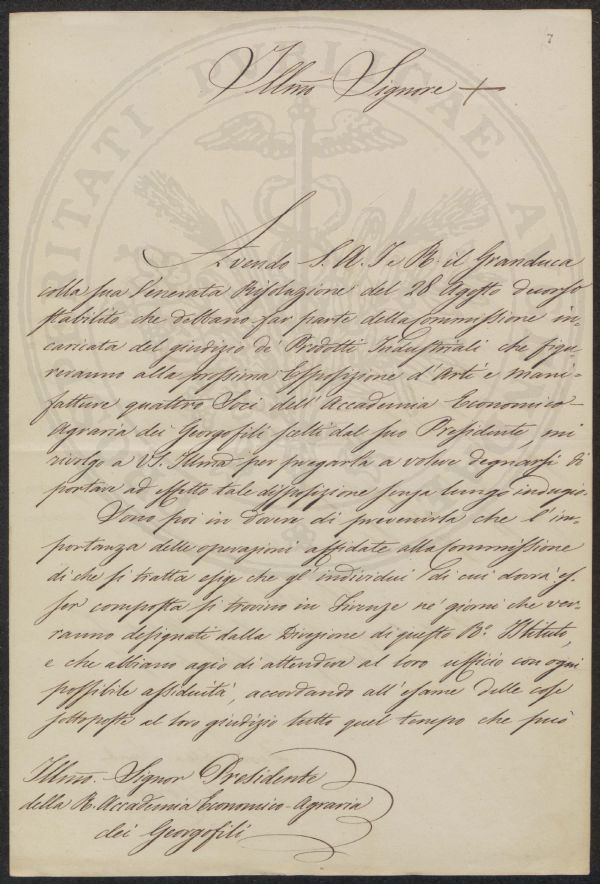 7
Illmo Signore
Avendo S. A. I. e R. il Granduca
colla sua Venerata Risoluzione del 28 Agosto decorso
stabilito che debbano far parte della Commissione in=
caricata del giudizio di Prodotti Industriali che figu=
reranno alla prossima Esposizione d'Arti e Mani=
fatture quattro Soci dell'Accademia Economico
Agraria dei Georgofili scelti dal suo Presidente, mi
rivolgo a VS. Illma per pregarla a volere degnarsi di
portare ad effetto tale disposizione senza lungo indugio.
Sono poi in dovere di prevenirla che l'im=
portanza delle operazioni affidate alla Commissione
di che si tratta esige che gl'individui di cui dovrà es.
ser composta si trovino in Firenze ne' giorni che ver=
ranno designati dalla Direzione di questo Ro. Istituto,
e che abbiano agio di attendere al loro ufficio con ogni
possibile assiduità, accordando all'esame delle cose
sottoposte al loro giudizio tutto quel tempo che può
Illmo. Signor Presidente
della R. Accademia Economico-Agraria
dei Georgofili
PUBLICAE